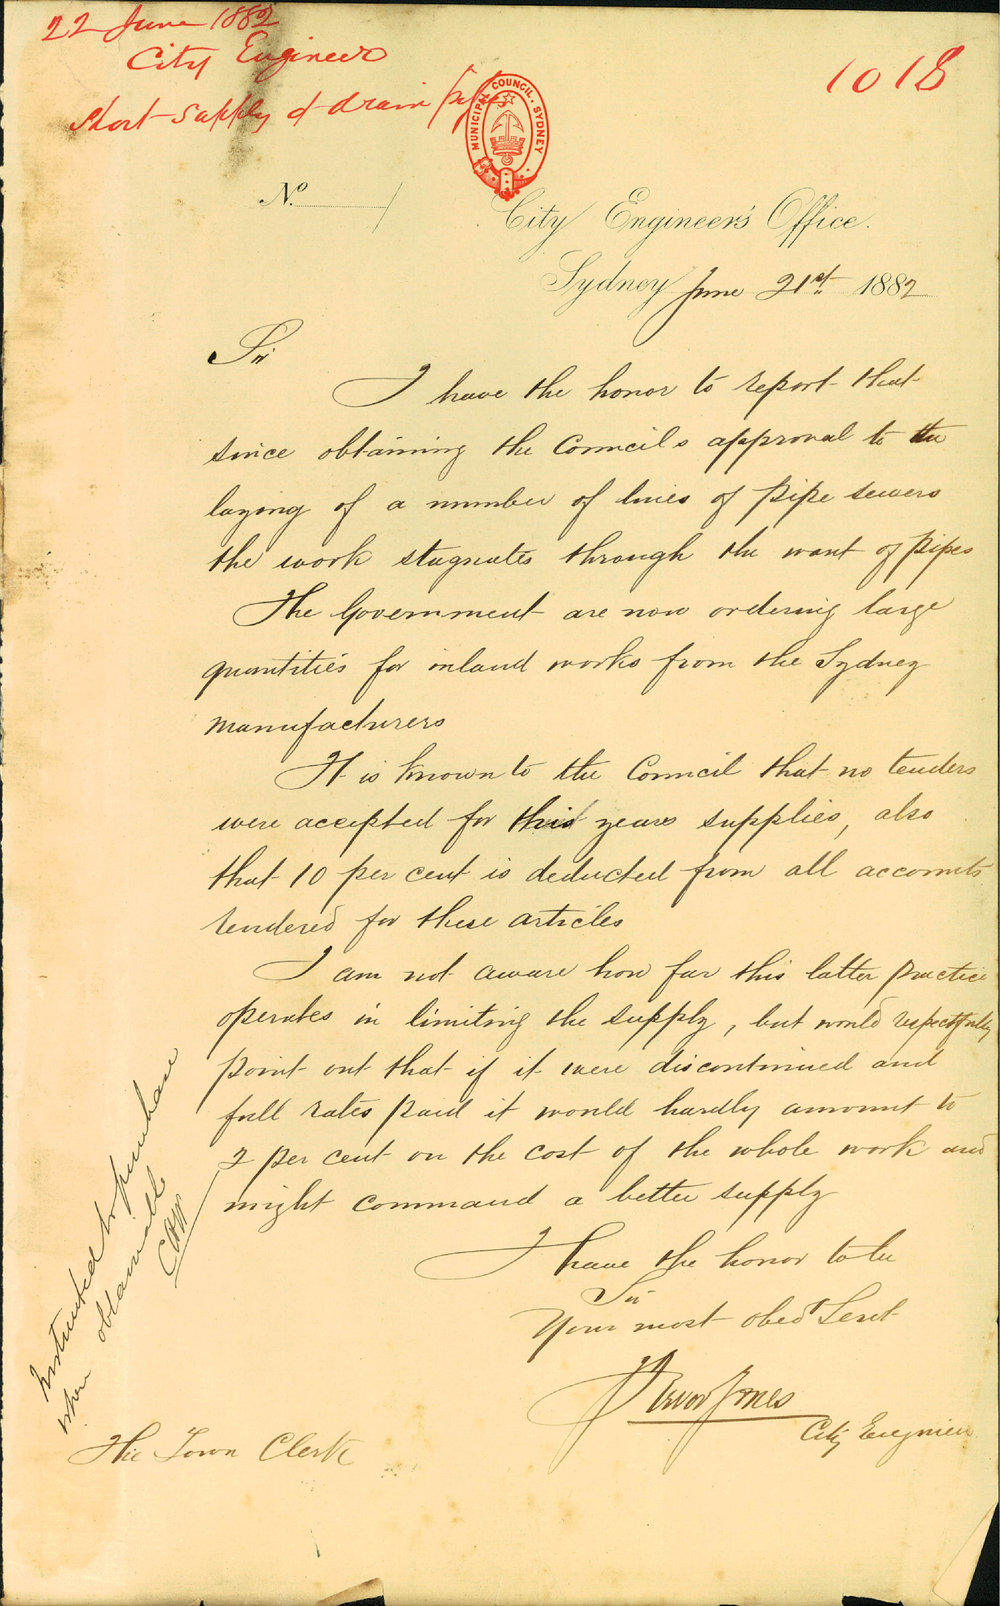 22 June 1882
City Engineer
Short supply of drain pipes
1018
MUNICIPAL COUNCIL. SYDNEY
No.
City Engineer's Office.
Sydney June 21st 1882
Sir
I have the honor to report that
since obtaining the Councils approval to the
laying of a number of lines of pipe sewers
the work stagnates through the want of pipes
The Government are now ordering large
quantities for inland works from the Sydney
manufacturers
It is known to the Council that no tenders
were accepted for this years supplies, also
that 10 per cent is deducted from all accounts
rendered for these articles
I am not aware how far this latter practice
operates in limiting the supply, but would respectfully
point out that if it were discontinued and
full rates paid it would hardly amount to
2 per cent on the cost of the whole work and
might command a better supply
I have the honor to be
Sir
Your most obedt Servt
Trevor Jones
City Engineer
The Town Clerk
Instructed to purchase
when obtainable